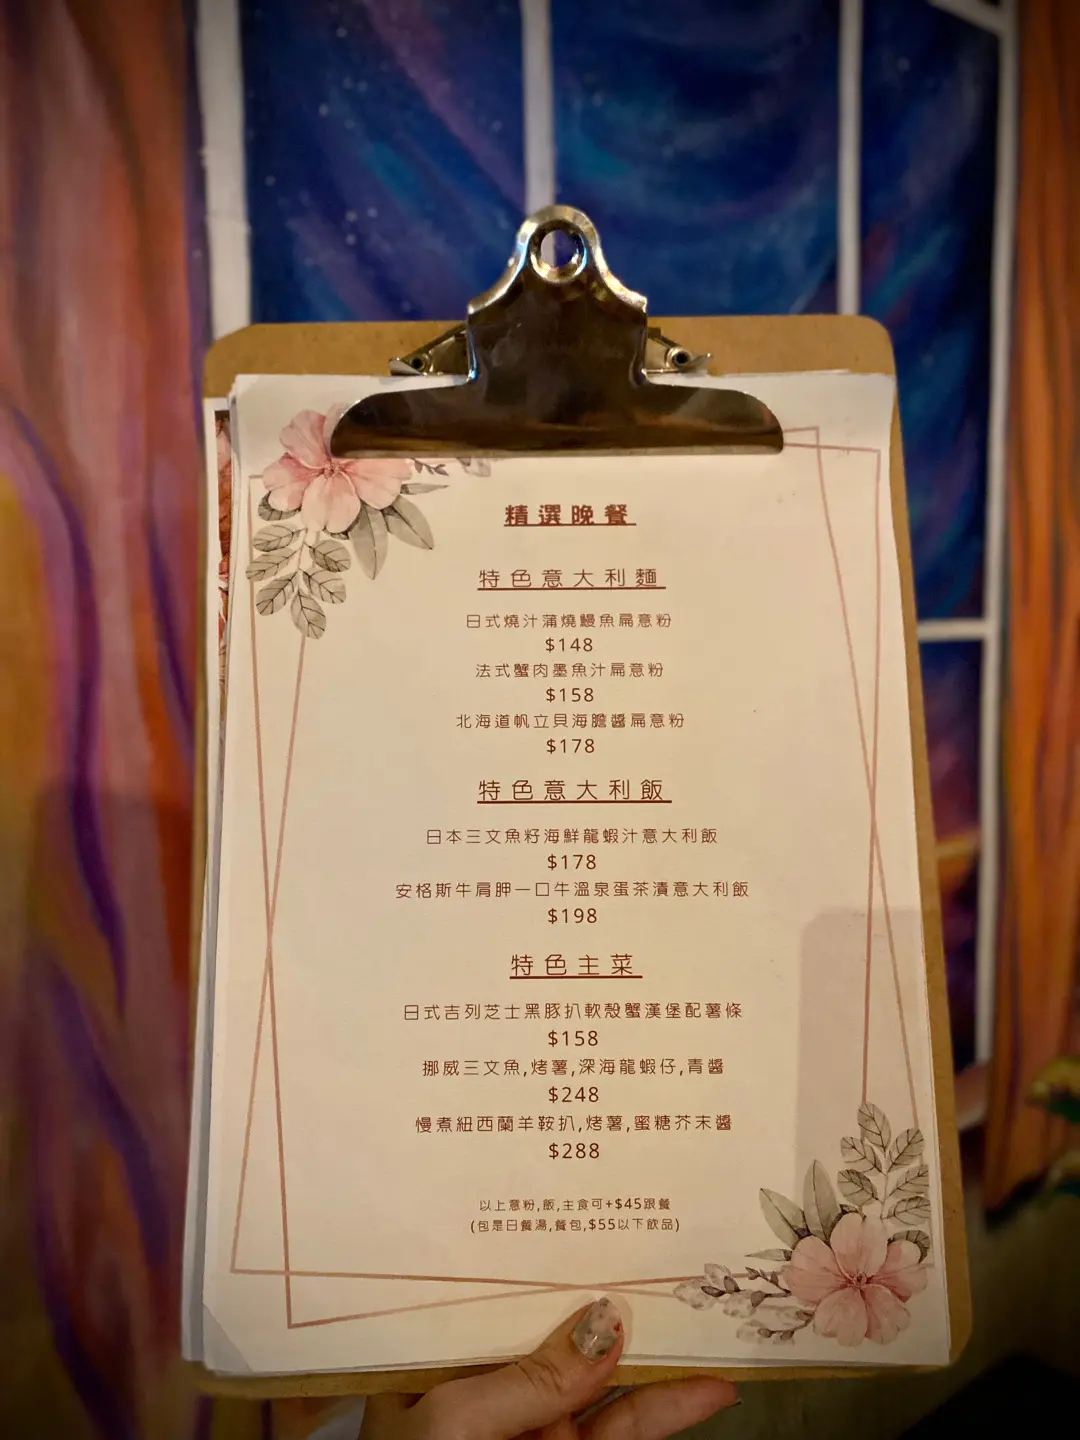 精選晚餐
特色意大利麵
日式燒汁蒲燒鰻魚扁意粉
$148
法式蟹肉墨魚汁扁意粉
$158
北海道帆立貝海膽醬扁意粉
$178
特色意大利飯
日本三文魚籽海鮮龍蝦汁意大利飯
$178
安格斯牛肩胛一口牛溫泉蛋茶漬意大利飯
$198
特色主菜
日式吉列芝士黑豚扒軟殼蟹漢堡配薯條
$158
挪威三文魚,烤薯,深海龍蝦仔,青醬
$248
慢煮紐西蘭羊鞍扒,烤薯,蜜糖芥末醬
$288
以上意粉,飯,主食可+$45跟餐
(包是日餐湯,餐包,$55以下飲品)